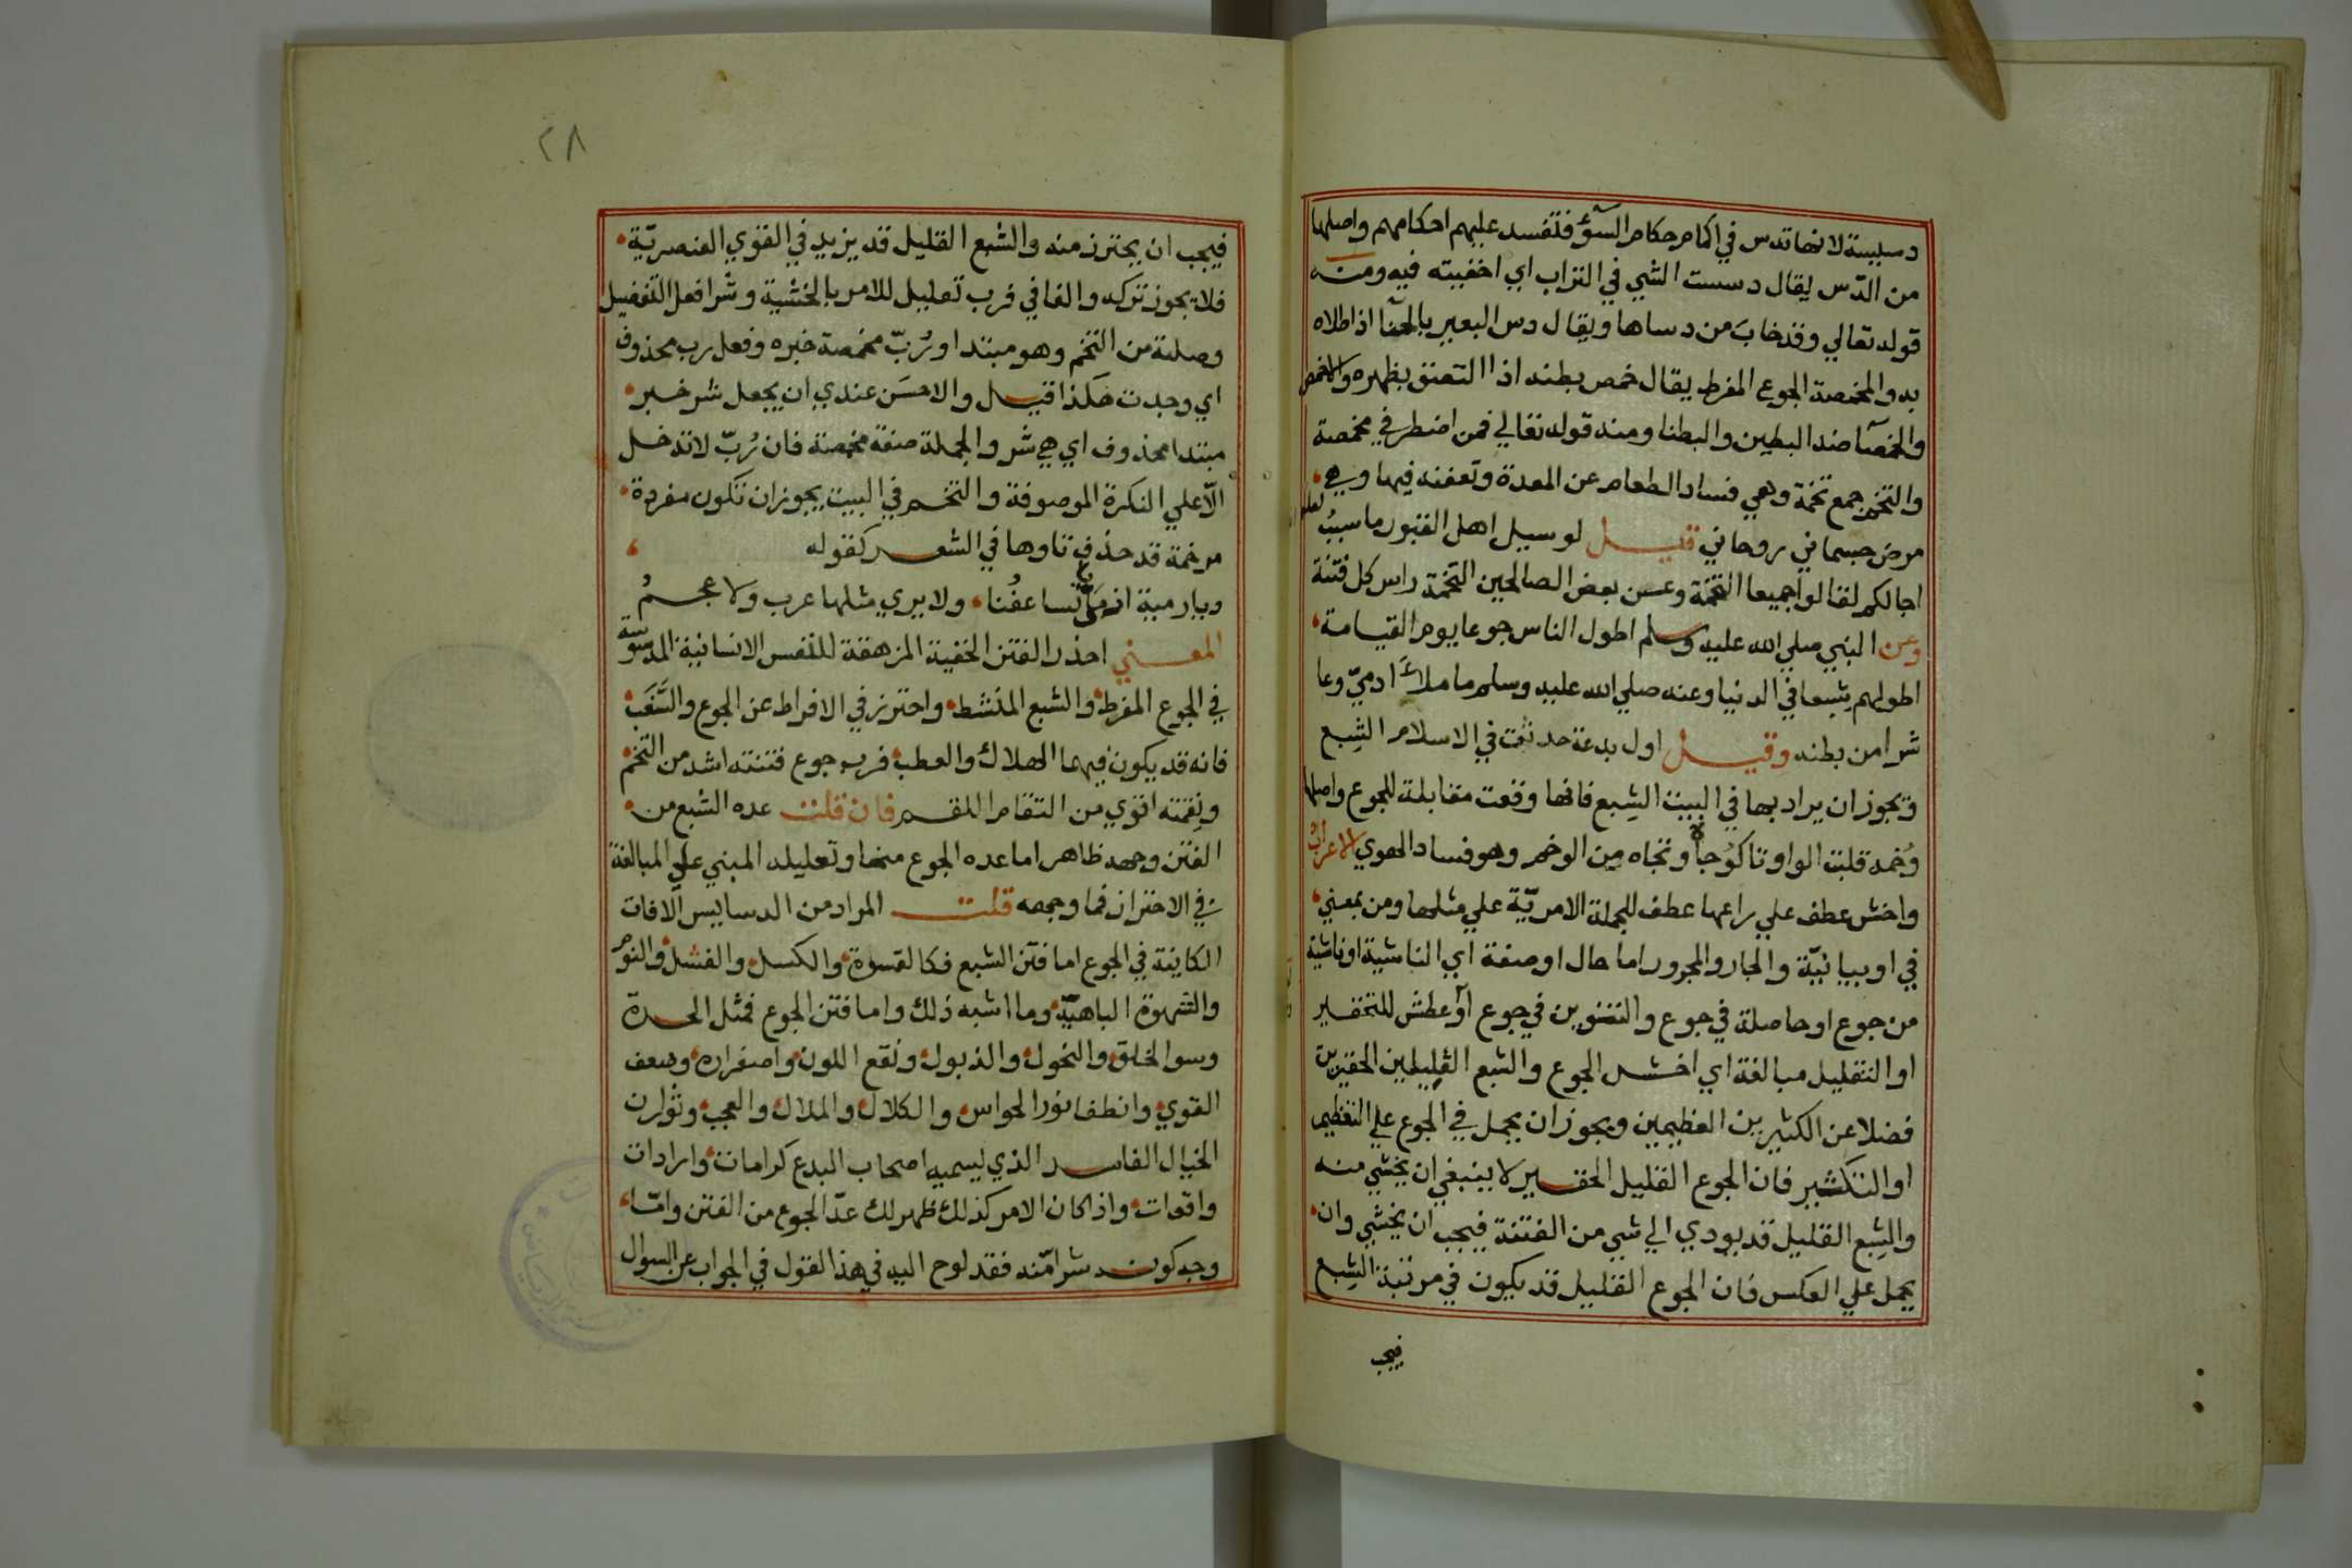 دسيسة لانها تدس في اكمام حكام السوء فتفسد عليهم احكامهم واصلها
من الدّس يقال دسست الشي في التراب اي اخفيته فيه ومنه
قوله تعالي وقد خابَ من دساها ويقال دس البعير بالهنآ اذا طلاه
به والمخمصة الجوع المفرط يقال خمص بطنه اذا التصق بظهره والاخمص
والخمصآ ضد البطين والبطنا ومنه قوله تعالي فمن اضطر في مخمصة
والتخم جمع تخمة وهي فساد الطعام عن المعدة وتعفنه فيها وهي
مرض جسماني روحاني قيل لو سيل اهل القبور ما سببُ
اجالكم لقالوا جميعا التخمة وعن بعض الصالحين التخمة راس كل فتنة
وعن النبي صلي الله عليه وسلم اطول الناس جوعا يوم القيامة
اطولهم شبعا في الدنيا وعنه صلي الله عليه وسلم ما ملأ ادميّ وعا
شرا من بطنه وقيل اول بدعة حدثت في الاسلام الشِبع
ويجوز ان يراد بها في البيت الشِبع فانها وقعت مقابلة للجوع واصلها
وُخمه قلبت الواو تا كوُجاه وتجاه من الوخم وهو فساد الهوي الاعراب
واخش عطف علي راعها عطف للجملة الامريّة علي مثلها ومن بمعني
في او بيانيّة والجار والمجرور اما حال او صفة اي الناشية او ناشية
من جوع او حاصلة في جوع والتنوين في جوع او عطش للتحقير
او التقليل مبالغة اي اخش الجوع والشبع القليلين الحقيرين
فضلا عن الكثيرين العظيمين ويجوز ان يحمل في الجوع علي التعظيم
او التكثير فان الجوع القليل الحقير لا ينبغي ان يخشي منه
والشِبع القليل قد يودي الي شي من الفتنة فيجب ان يخشي وان
يحمل علي العكس فان الجوع القليل قد يكون في مرتبة الشِبع
فيجب
٢٨
فيجب ان يحترز منه والشبع القليل قد يزيد في القوي العنصريّة
فلا يجوز تركه والفا في فرب تعليل للامر بالخشية وشرا فعل التفضيل
وصلته من التخم وهو مبتدا ورُبّ مخمصة خبره وفعل رب محذوف
اي وجدت هكذا قيل والاحسَن عندي ان يجعل شر خبر
مبتدا محذوف اي هي شر والجملة صفة مخمصة فان رُبّ لا تدخل
الّا علي النكرة الموصوفة والتخم في البيت يجوز ان تكون مفردة
مرخمة قد حذف تاوها في الشعر كقوله
ديار مية اذ مَيّ تساعفُنا ولا يري مثلها عرب ولا عجمُ
المعني احذر الفتن الخفية المزهقة للنفس الانسانية المدسوسة
في الجوع المفرط والشبع المنشط واحترز في الافراط عن الجوع والسَّغَب
فانه قد يكون فيهما الهلاك والعطب فرب جوع فتنته اشد من التخم
ونقمته اقوي من التقام اللقم فان قلت عده الشبع من
الفتن وجهه ظاهر اما عده الجوع منها وتعليله المبني علي المبالغة
في الاحتراز فما وجهه قلت المراد من الدسايس الافات
الكاينة في الجوع اما فتن الشبع فكالقسوة والكسل والفشل والنوم
والشهوة الباهيّة وما اشبه ذلك واما فتن الجوع فمثل الحدة
وسوا الخلق والنحول والذبول ونقع اللون واصفراره وضعف
القوي وانطفا نور الحواس والكلال والملال والعجب وثوارن
الخيال الفاسد الذي يسميه اصحاب البدع كرامات وارادات
واقعات واذا كان الامر كذلك ظهر لك عدّ الجوع من الفتن وامّا
وجه كونه شرا منه فقد لوح اليه في هذا القول في الجواب عن السوال